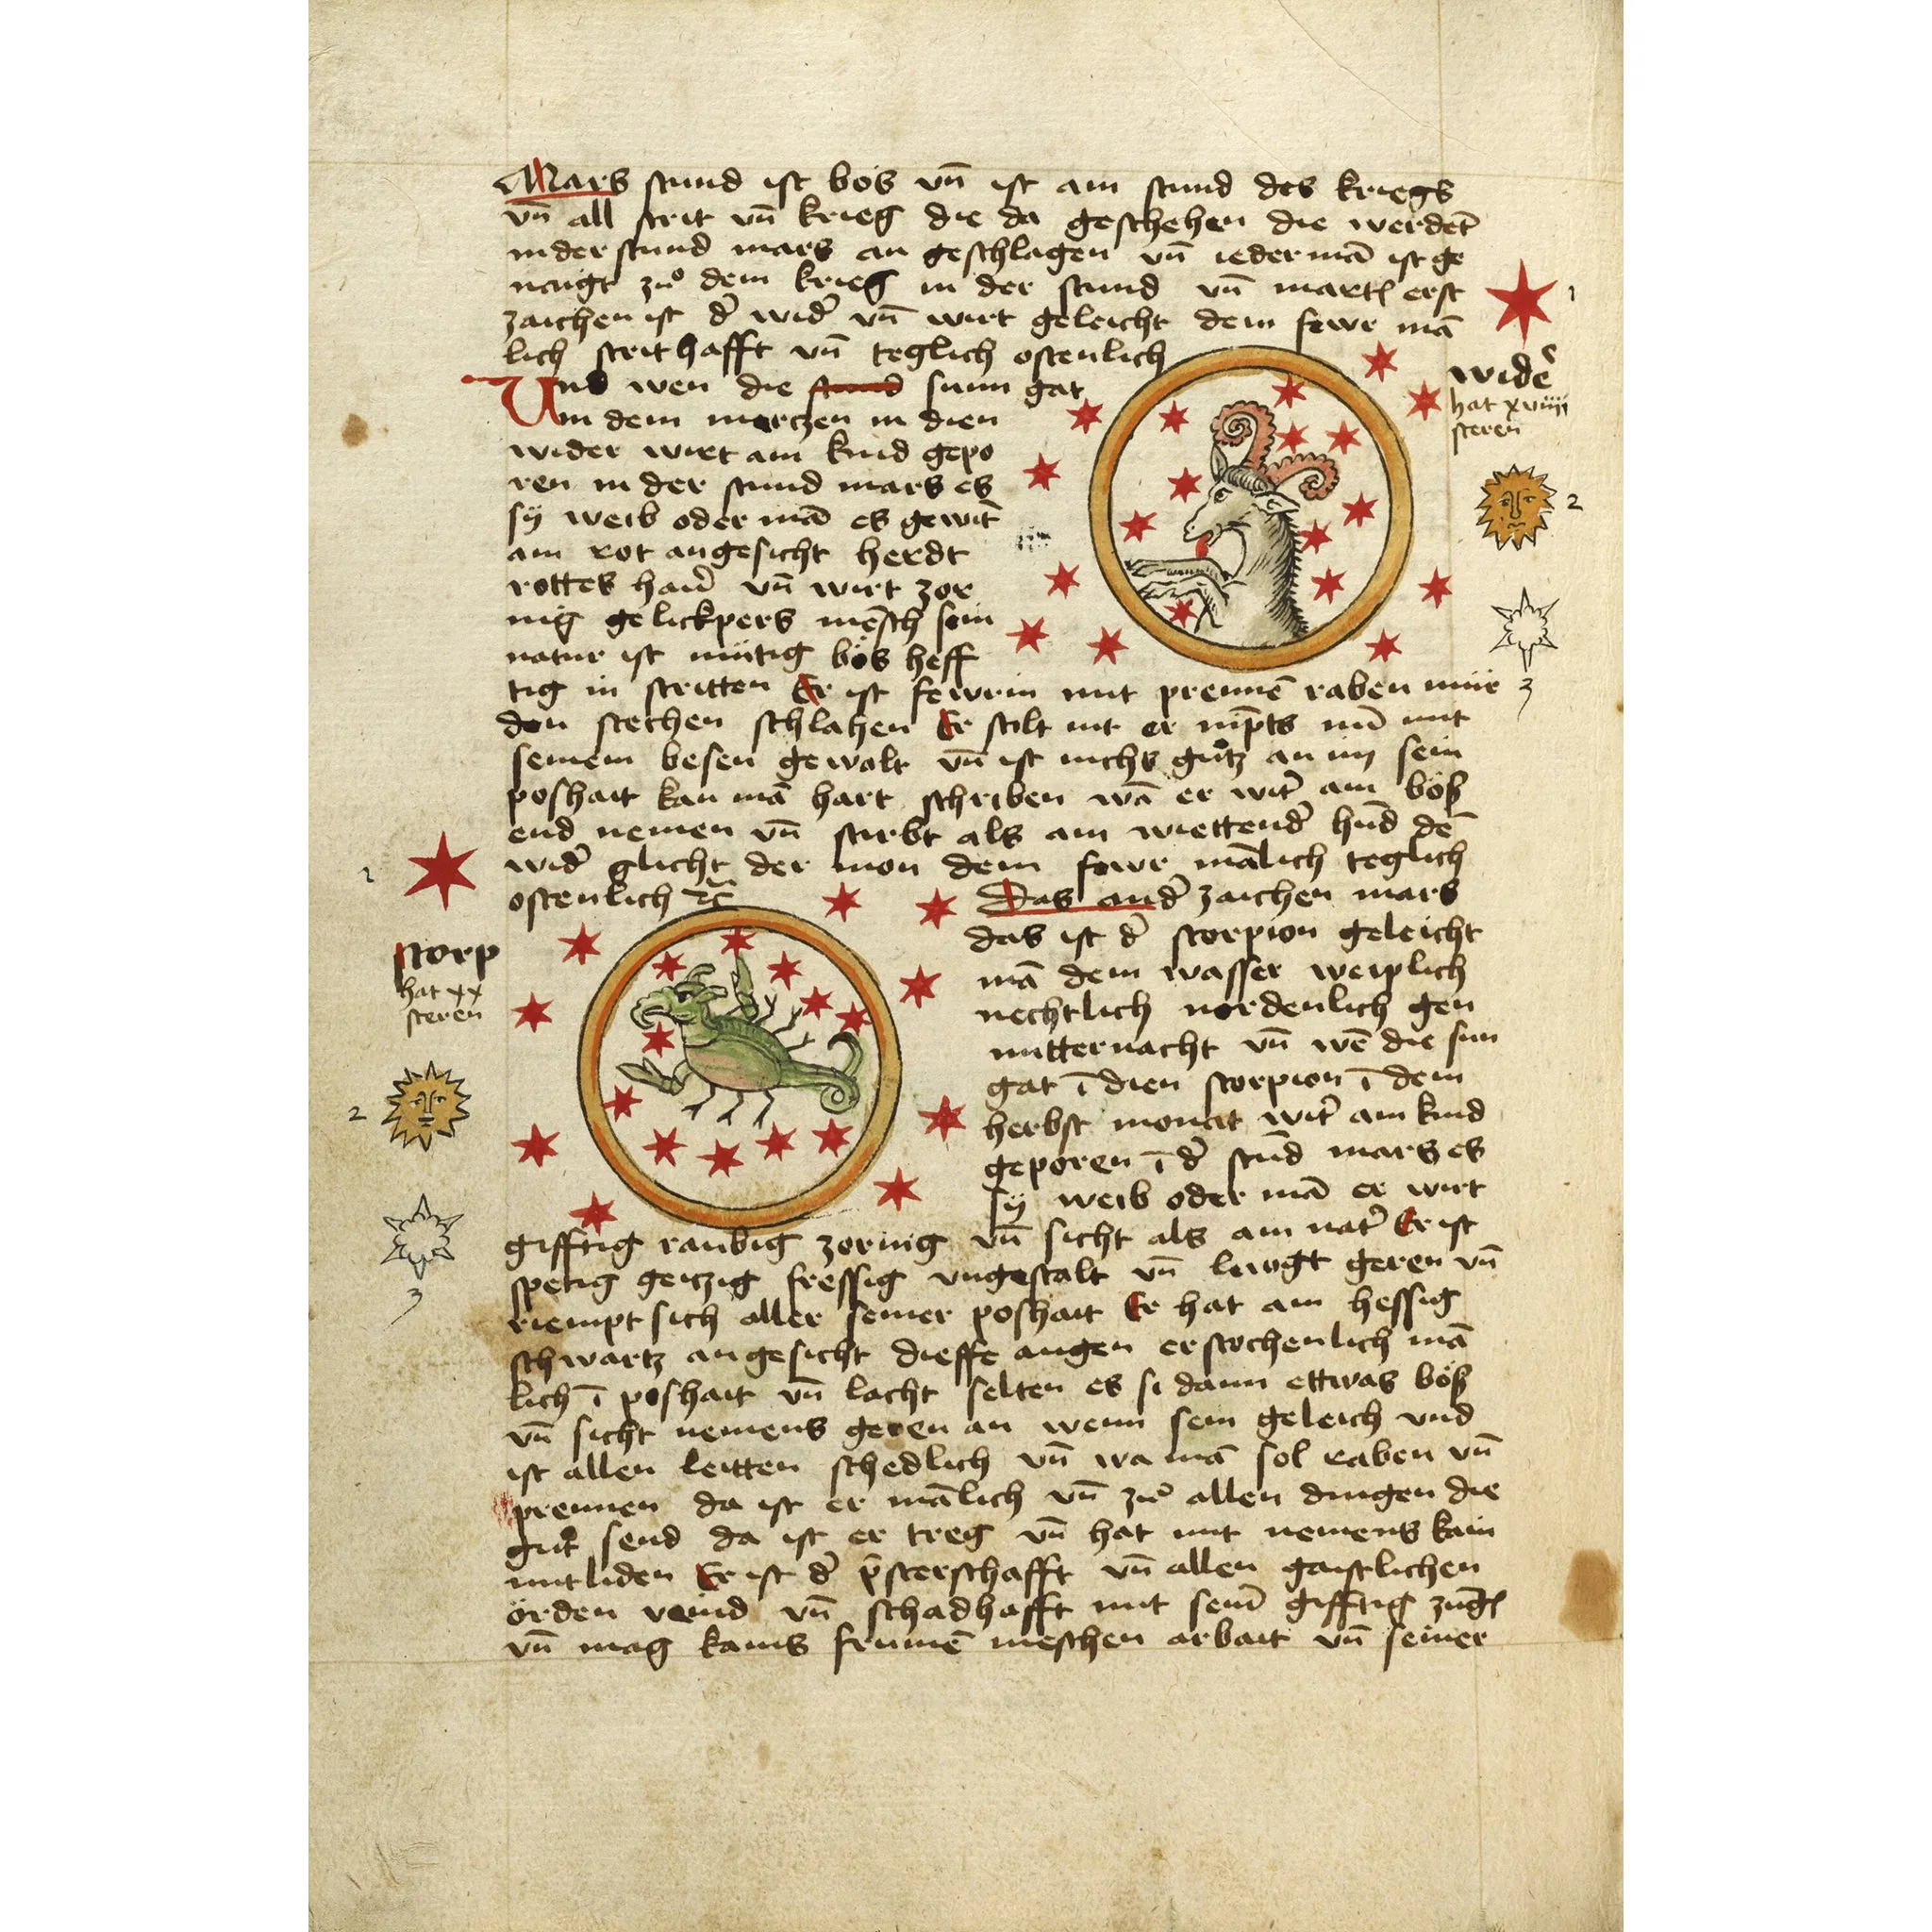 Mars stund ist bös vn̄ ist ain stund des kriegs
vn̄ all strit vn̄ krieg die da geschehen die werdēt
in der stund mars an geschlagen vn̄ iederma̅ ist ge
naigt zuͦ dem krieg in der stund vn̄ mart erst
zaichen ist d' wid' vn̄ wirt geleicht dem fewr ma̅
lich strithafft vn̄ teglich ostenlich
Und wen die stund sunn gat
in dem mertzen in dien
wider wirt ain kind gepo
ren in der stund mars es
sÿ weib oder ma̅ es gewīt
ain rot angesicht herdt
rottes har vn̄ wirt zor
nig gelickpers me̅sch sein
natur ist mütig bös heff
tig in stritten Er ist fewrin mit prenne̅ raben mür
den stechen schlahen Er stilt nit er nīpts nu̅ mit
seinem besen gewalt vn̄ ist nichs guͦtz an im sein
poshait kan ma̅ hart schriben wa̅ er wirt ain böß
end nemen vn̄ stirbt als ain wiettend' hu̅d de̅
wid' glicht der mon dem fewr ma̅lich teglich
ostenlich ꝛc
Das and' zaichen mars
das ist d' scorpion geleicht
ma̅ dem wasser weiplich
nechtlich nordenlich gen
mitternacht vn̄ we̅ die sun
gat ī dien scorpion ī dem
herbst monat wirt ain kind
geporen ī d' stu̅d mars es
sÿ weib oder ma̅ er wirt
gifftig raubig zornig vn̄ sicht als ain nat' Er ist
spetig geitzig fressig vngestalt vn̄ leugt geren vn̄
riempt sich aller seiner poshait Er hat ain hessig
schwartz angesicht dieffe augen erstochenlich ma̅
lich ī poshait vn̄ lacht selten es si dann ettwas böß
vn̄ sicht nemens geren an wenn sein geleich vnd
ist allen leitten schedlich vn̄ wa ma̅ sol raben vn̄
prennen da ist er ma̅lich vn̄ zuͦ allen dingen die
guͦt send da ist er treg vn̄ hat mit nemens kain
mitliden Er ist d' p̄sterschafft vn̄ allen gaistlichen
örden veind vn̄ schadhafft mit seim̄ gifftig zu̅g
vn̄ mag kains frume̅ meschen arbait vn̄ seiner
1
wide'
hat xviiij
steren
2
3
1
scorp
hat xx
steren
2
3